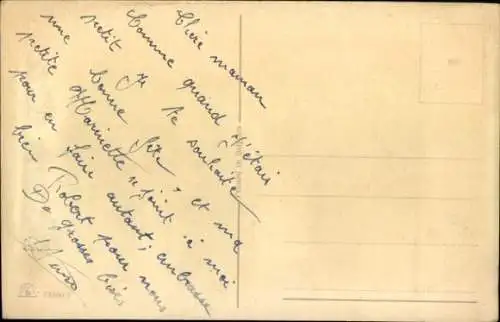 Chère maman
Comme quand j'étais
petit je te souhaite
une bonne fête, et ma
petite Marinette se joint à moi
pour en faire autant; embrasse
bien Robert pour nous
De grosses bises